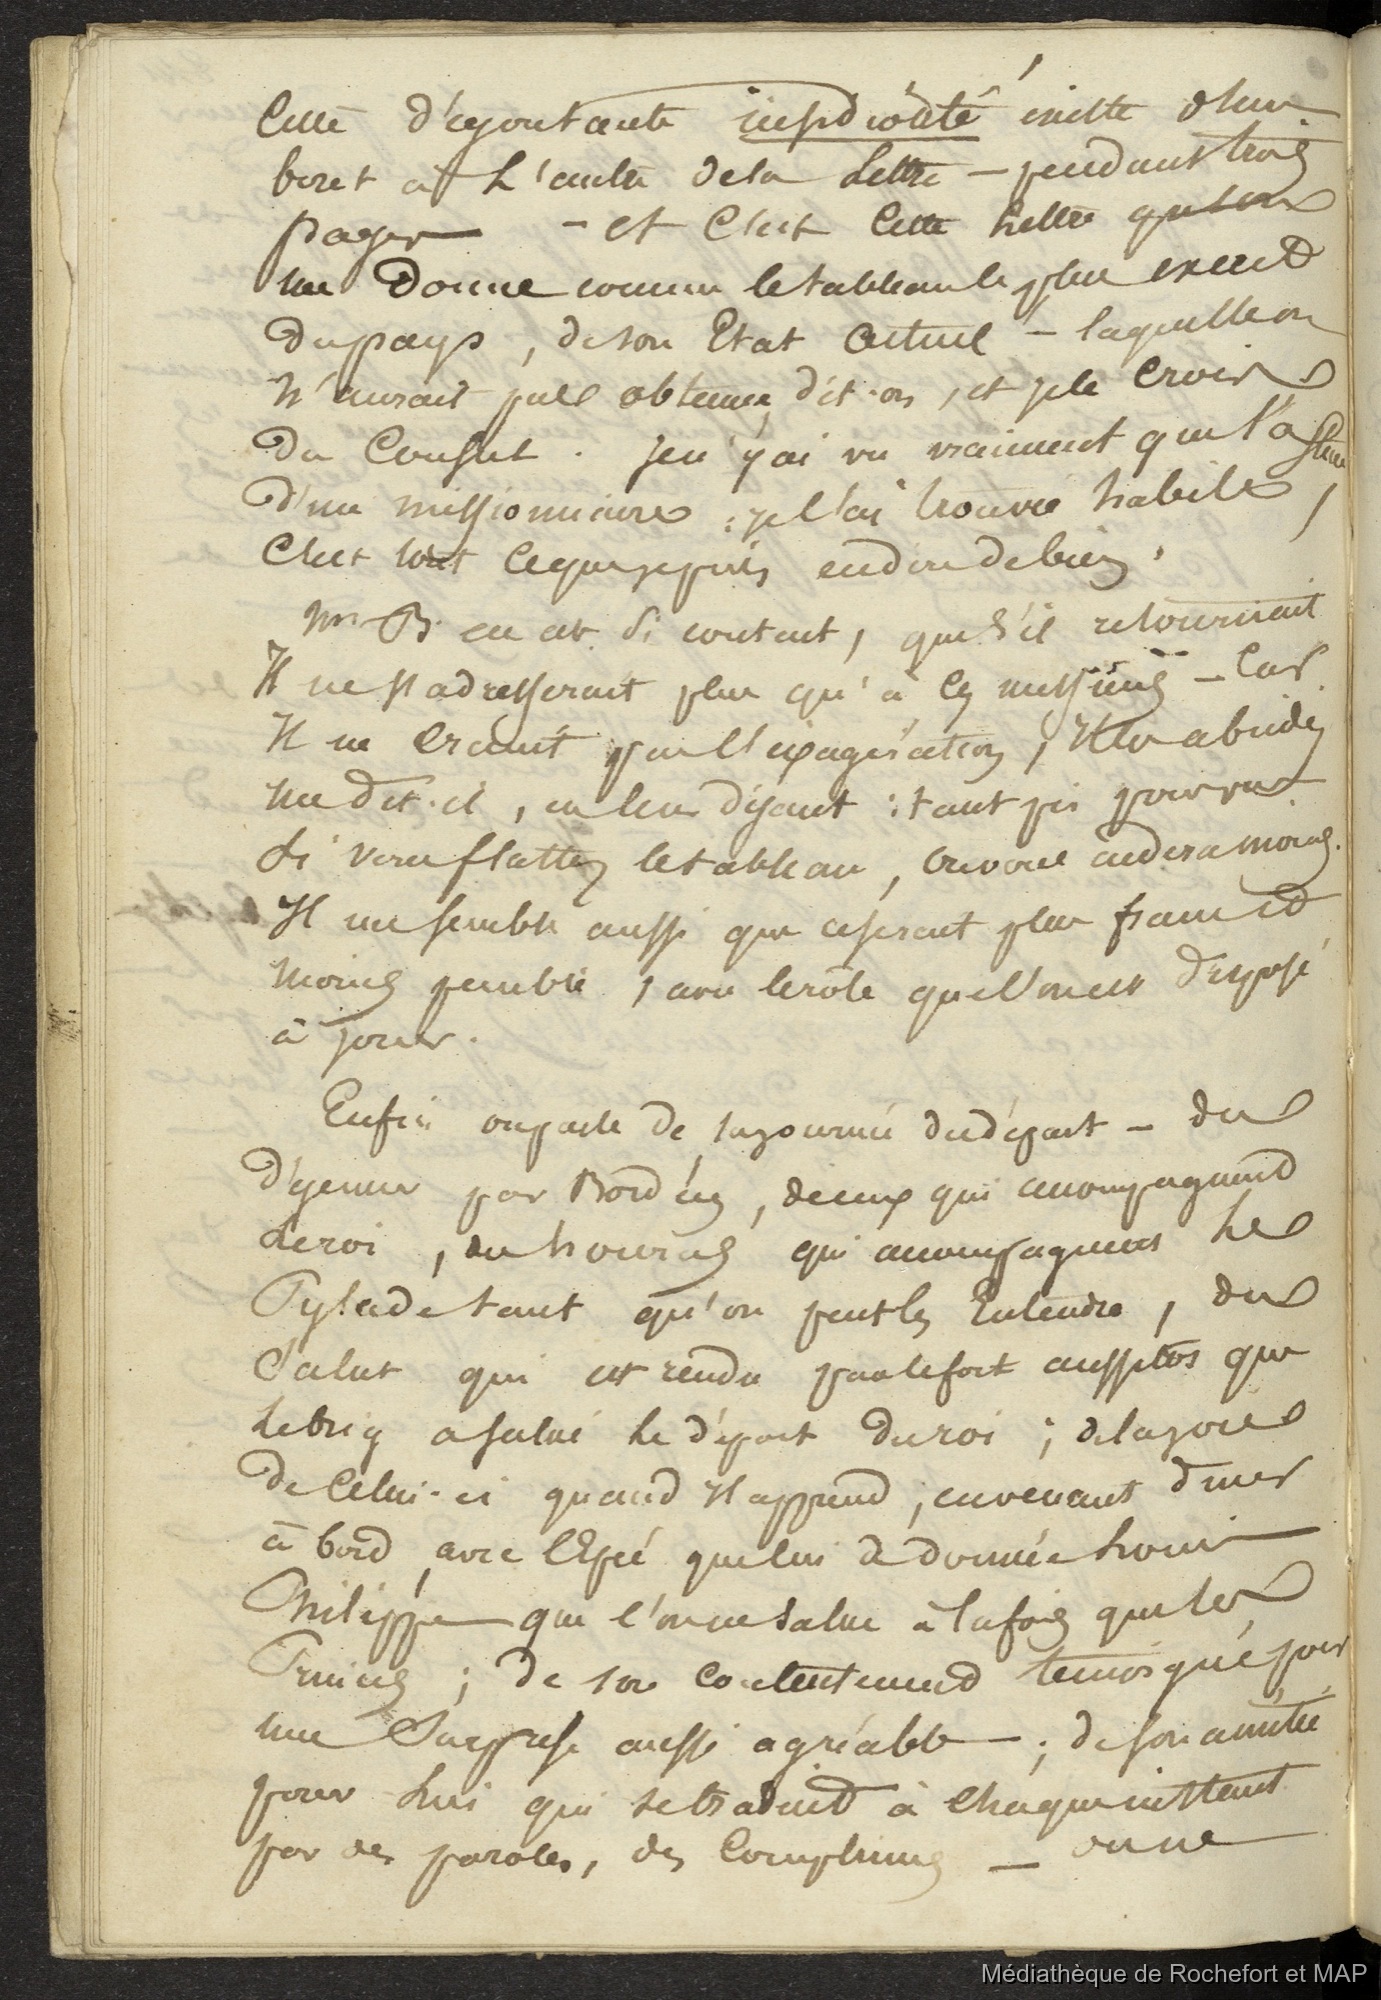 Cette dégoutante insidiosité existe d'un
boret à l'autre de la lettre - pendant trois
pages - et c'est cette lettre que l'on
me Donne comme le tableau le plus exact
du pays, de son Etat actuel - laquelle on
n'aurait pas obtenue, dit-on, et je le crois
du Consul. Je n'y ai vu vraiment que l'astuce
d'un missionnaire, je l'ai trouvée habile,
c'est tout ce que je puis en dire de bien.
Mr B. en est si content, que s'il retournait
Il ne s'adresserait plus qu'à ces messieurs - Car
Il ne craint pas l'exagération, Il les a bridés
me dit-il, en leur disant : tant pis pour vous
si vous flattez le tableau, on vous aidera moins.
Il me semble aussi que ce serait plus franc et
moins pénible, avec le rôle que l'on est disposé
à jouer.
Enfin on parle de la journée du départ - du
déjeuner par Bord des, de ceux qui accompagnent
Le roi, des houras qui accompagnent Le
Pylade tant qu'on peut les Entendre, du
Salut qui est rendu par le fort aussitôt que
Le brig a salué Le départ du roi ; de la joie
de Celui-ci quand Il apprend, en venant diner
à bord, avec l'Epée que lui a donnée Louis
Philippe que l'on ne salue à la fois que les
Princes ; de son contentement témoigné pour
une Surprise aussi agréable - ; de son amitié
pour lui qui se traduit à chaque instant
par des paroles, des Compliments - on ne
Médiathèque de Rochefort et MAP